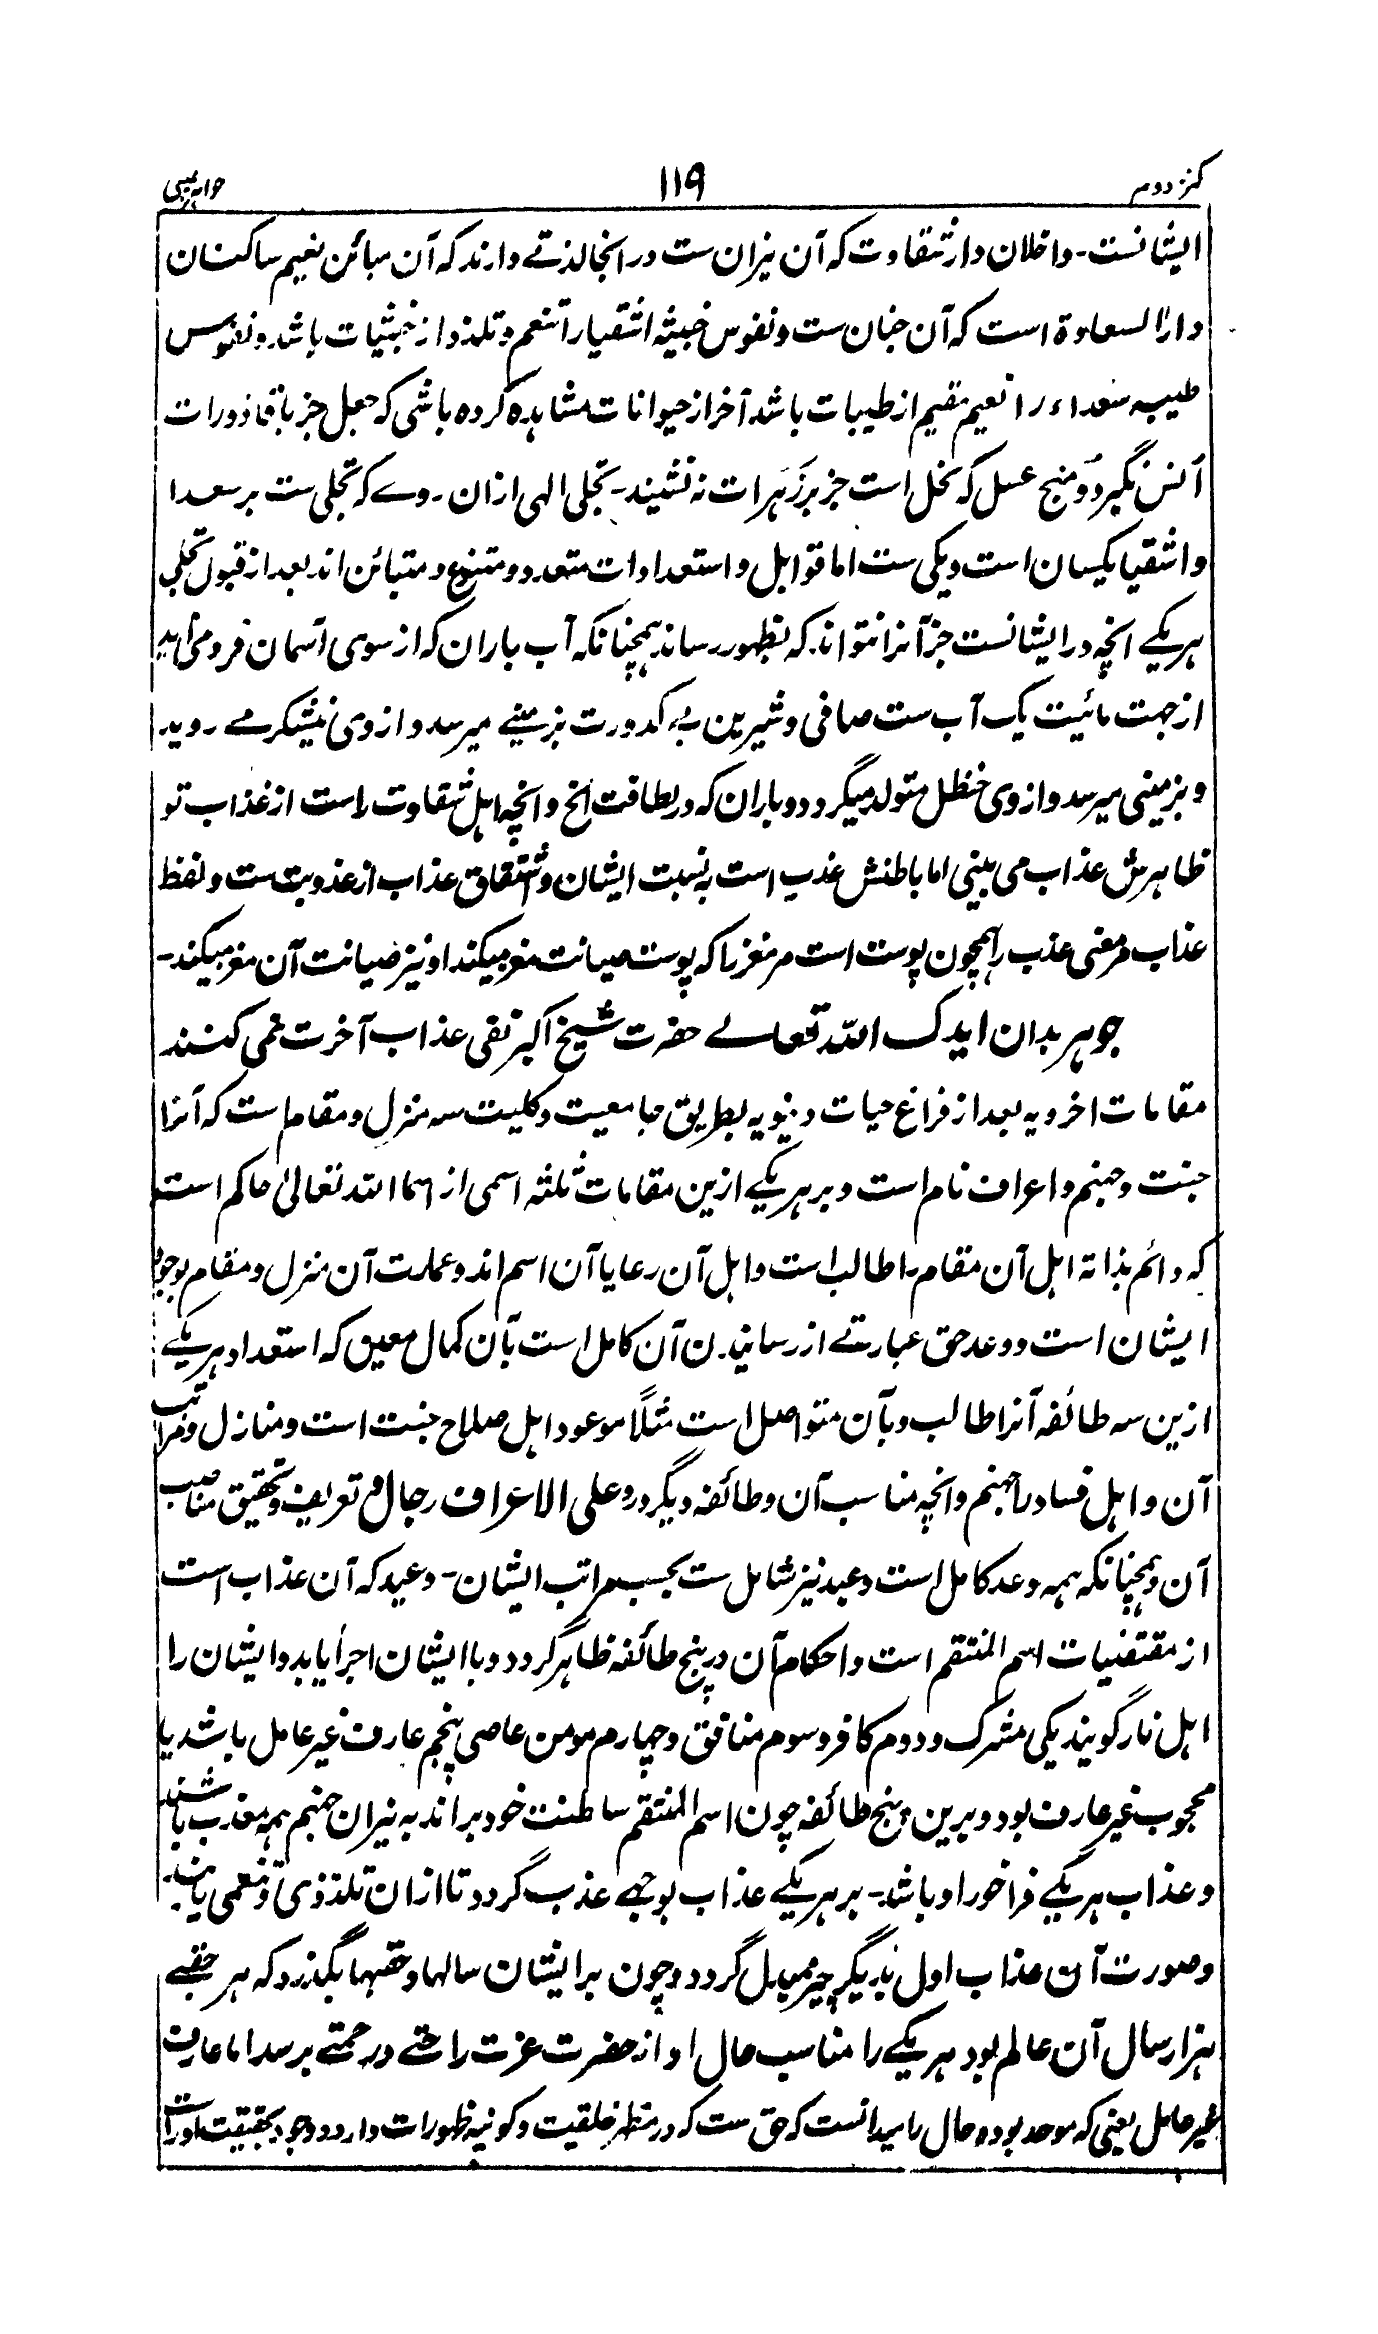 کنز دوم ۱۱۹ جواہر غیبی
ایشانست۔ داخلان دار شقاوت کہ آن نیران ست در انجا لذتے دارند کہ آن مبائن نعیم ساکنان
دار السعادة است کہ آن جنان ست و نفوس خبیثہ اشقیا را تنعم و تلذذ از خبیثیات باشد و نفوس
طیبہ سعداء را نعیم مقیم از طیبات باشد آخر از حیوانات مشاہدہ کردہ باشی کہ جعل جز باقاذورات
اُنس نگیرد و منج عسل کہ نحل است جز بر زَہَرات نہ نشیند۔ تجلی الہی ازان روے کہ تجلی ست بر سعدا
و اشقیا یکسان است و یکی ست اما قوابل و استعدادات متعدد و متنوع و متبائن اند بعد از قبول تجلی
ہر یکے انچہ در ایشانست جز آنرا نتواند کہ بظہور رساند ہمچنانکہ آب باران کہ از سوی آسمان فرو می آید
از جہت مائیت یک آب ست صافی و شیرین بے کدورت بزمینے میرسد و از وی نیشکر مے روید
و بزمینی میرسد و از وی حنظل متولد میگردد و باران کہ در لطافت الخ و انچہ اہل شقاوت راست از عذاب تو
ظاہرش عذاب می بینی اما باطنش عذب است بہ نسبت ایشان و اشتقاق عذاب از عذوبت ست و لفظ
عذاب مر معنی عذب را ہمچون پوست است مر مغز را کہ پوست صیانت مغز میکند او نیز صیانت آن مغز میکند۔
جوہر بدان ایدک اللہ تعالے حضرت شیخ اکبر نفی عذاب آخرت نمی کنند
مقامات اخرویہ بعد از فراغ حیات دنیویہ بطریق جامعیت و کلیت سہ منزل و مقام است کہ آنرا
جنت و جہنم و اعراف نام است و بر ہر یکے ازین مقامات ثلثہ اسمی از اسما اللہ تعالیٰ حاکم است
کہ دائم بذاتہ اہل آن مقام را طالب است و اہل آن رعایا آن اسم اند و عمارت آن منزل و مقام بوجود
ایشان است و وعد حق عبارتے از رسانیدن آن کامل است بآن کمال معین کہ استعداد ہر یکے
ازین سہ طائفہ آنرا طالب و بآن متواصل است مثلاً موعود اہل صلاح جنت است و منازل و مراتب
آن و اہل فساد را جہنم و انچہ مناسب آن و طائفہ دیگر در و علی الاعراف رجال و تعریف و تحقیق مناصب
آن و ہمچنانکہ ہمہ وعد کامل است وعید نیز شامل ست بحسب مراتب ایشان۔ وعید کہ آن عذاب است
از مقتضیات اسم المنتقم است و احکام آن در پنج طائفہ ظاہر گردد و با ایشان اجرأ یابد و ایشان را
اہل نار گویند یکی مشرک و دوم کافر و سوم منافق و چہارم مومن عاصی پنجم عارف غیر عامل باشد یا
محجوب غیر عارف بود و برین پنج طائفہ چون اسم المنتقم سلطنت خود براند بہ نیران جہنم ہمہ معذب باشند
و عذاب ہر یکے فراخور او باشد۔ بر ہر یکے عذاب بوجہے عذب گردد تا ازان تلذذی و تنعمی یابند۔
و صورت آن عذاب اول بدیگر چیز مبدل گردد و چون بر ایشان سالہا و حقبہا بگذرد کہ ہر حقبے
ہزار سال آن عالم بود ہر یکے را مناسب حال او از حضرت عزت راحتے و رحمتے برسد اما عارف
غیر عامل یعنی کہ موحد بودہ حال را میدانست کہ حق ست کہ در مظہر خلقیت و کونیہ ظہورات دارد و وجود بحقیقت اوراست